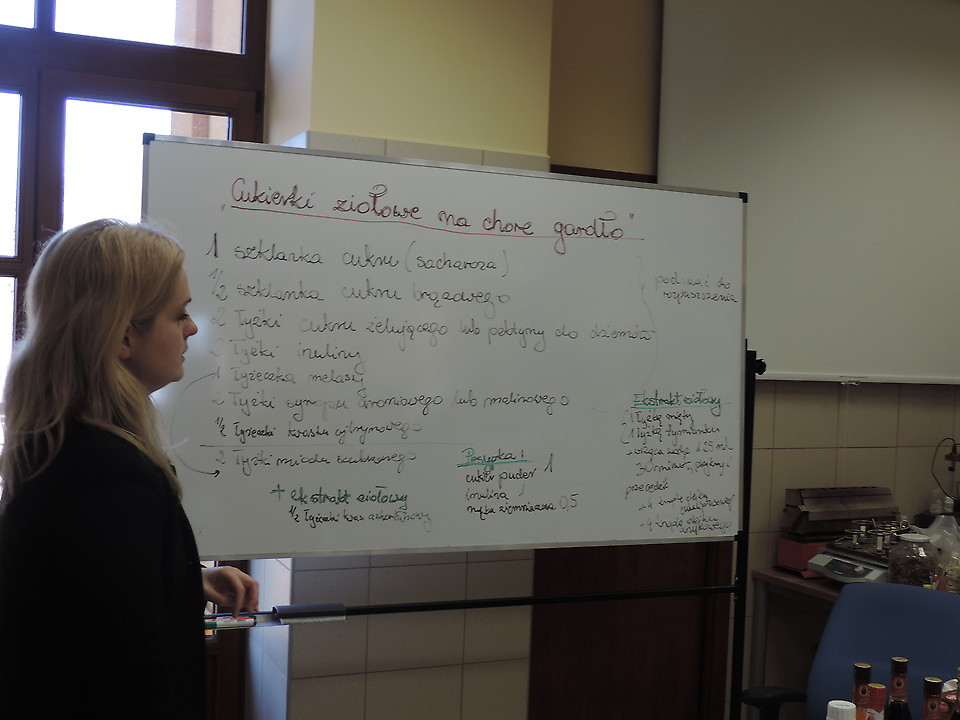 "Cukierki ziołowe na chore gardło"
1 szklanka cukru (sacharoza)
1/2 szklanka cukru brązowego
2 łyżki cukru żelującego lub pektyny do dżemów
2 łyżki inuliny
1 łyżeczka melasy
2 łyżki syropu aroniowego lub malinowego
1/2 łyżeczki kwasku cytrynowego
2 łyżki miodu
+ ekstrakt ziołowy
1/2 łyżeczki kwas askorbinowy
Posypka:
cukier puder 1
inulina 1
mąka ziemniaczana 0,5
podgrzać do
rozpuszczenia
Ekstrakt ziołowy
1 łyżka mięty
1 łyżka tymianku
125 ml
30 minut
przecedzić
+ 4 krople olejku
+ 4 krople olejku